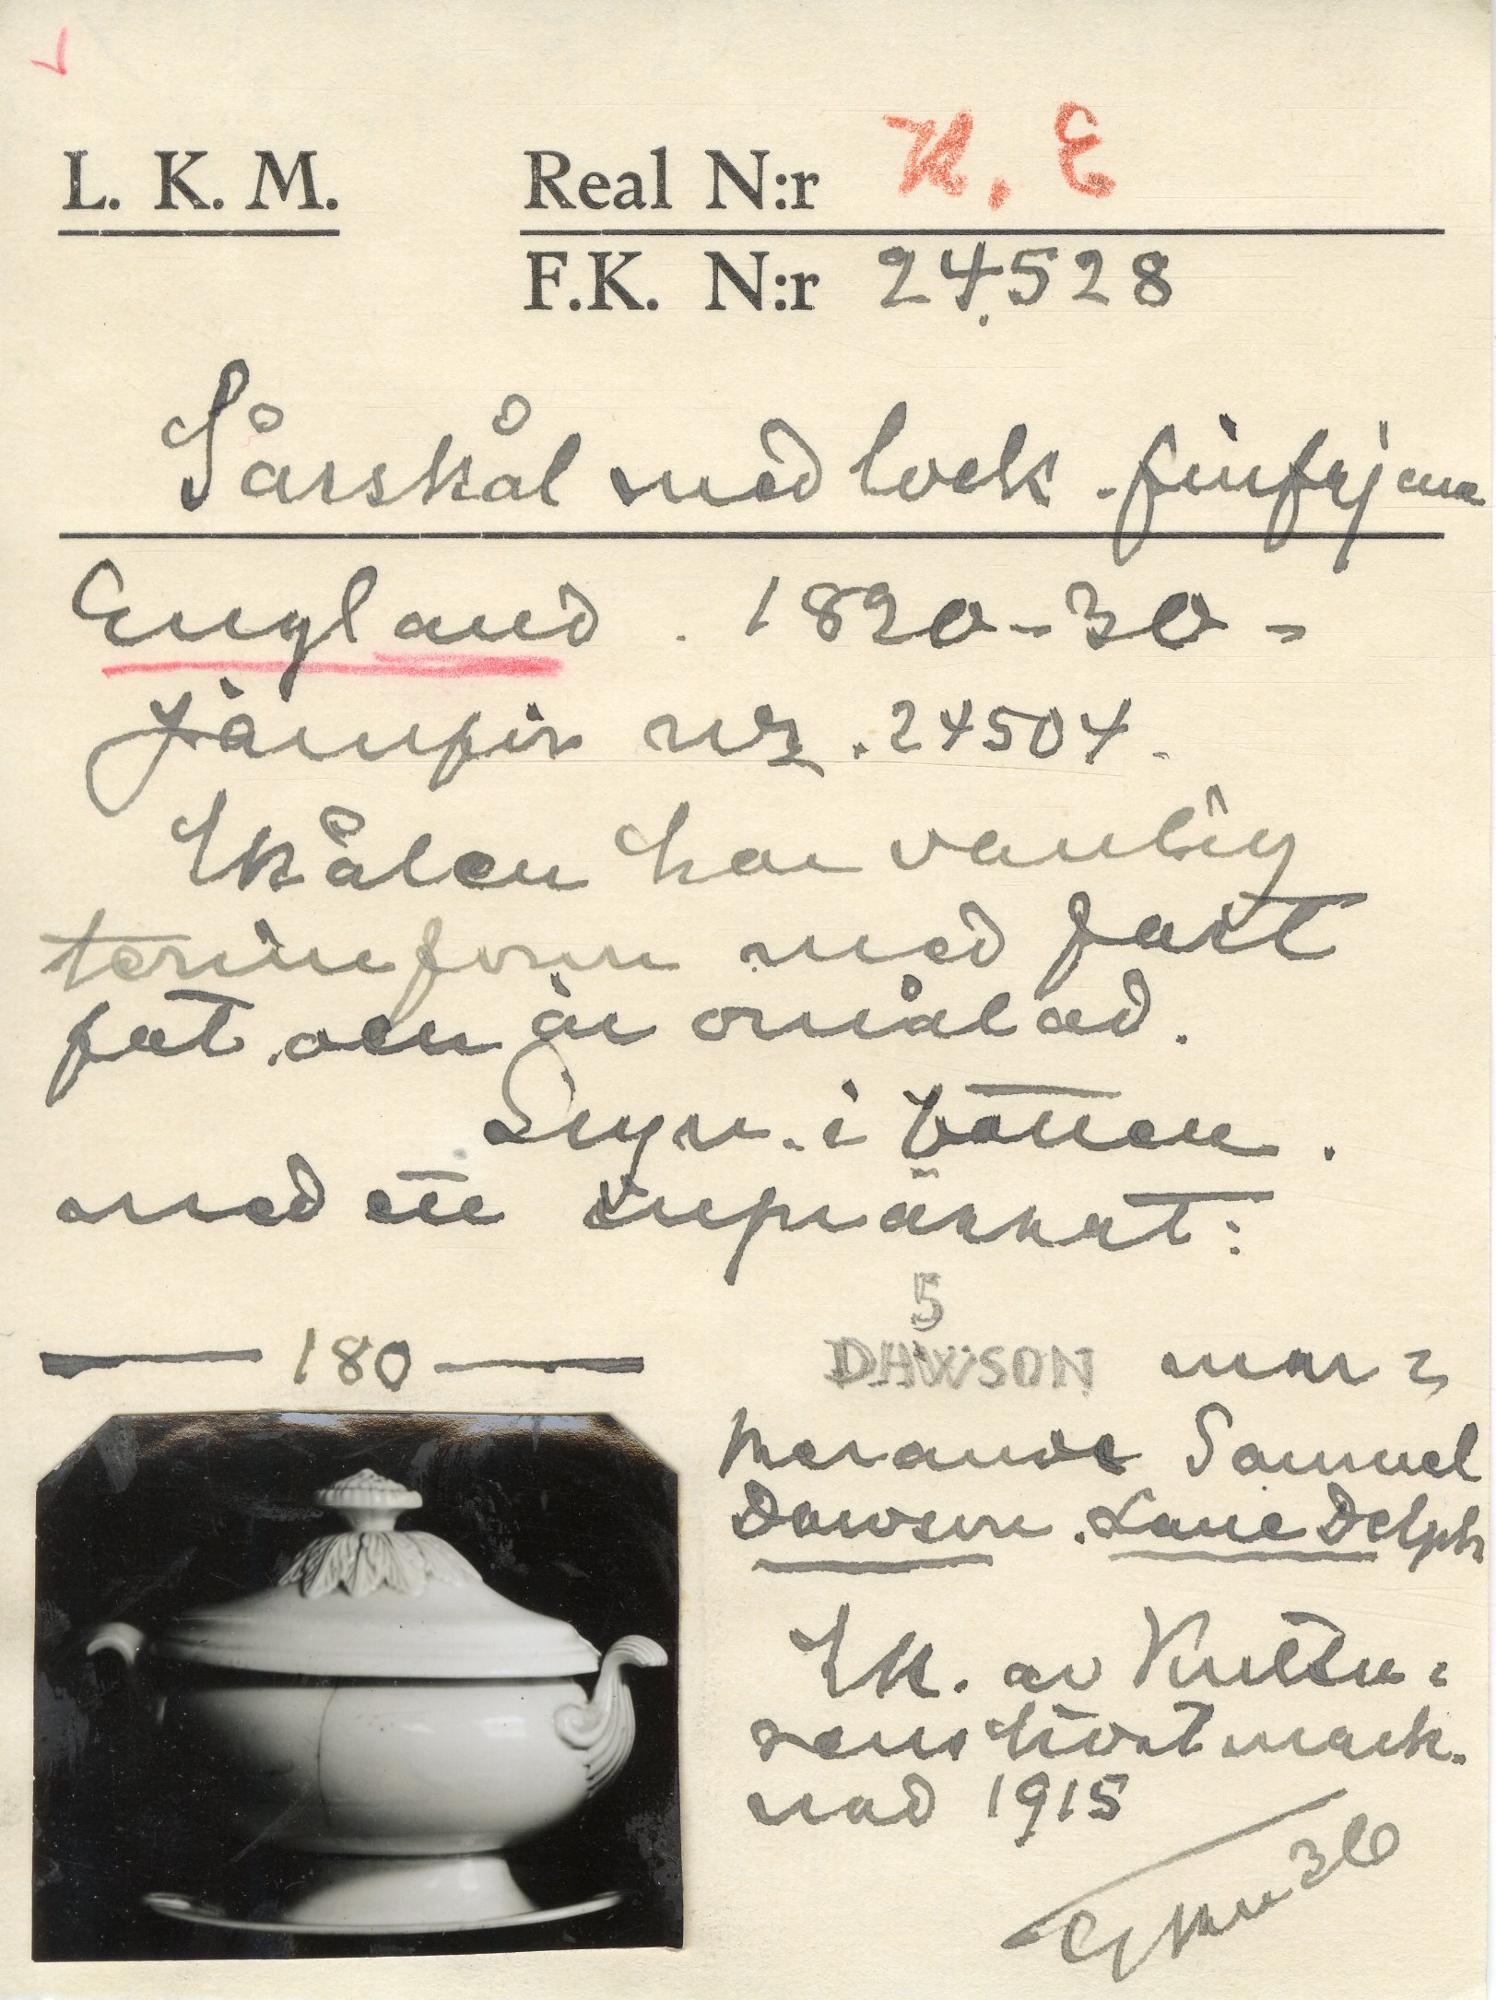 L. K. M.
Real N:r K. E
F.K. N:r 24528
Såsskål med lock. finfajans
England. 1820-30 -
Jämför nr. 24504.
Skålen har vanlig
terrinform med fast
fat och är omålad.
Sign. i botten.
med ett inpräskat:
5
DAWSON mar=
kerande Samuel
Dawson. Lane Delph
180
Sk. av Kultu=
rens höstmark-
nad 1915